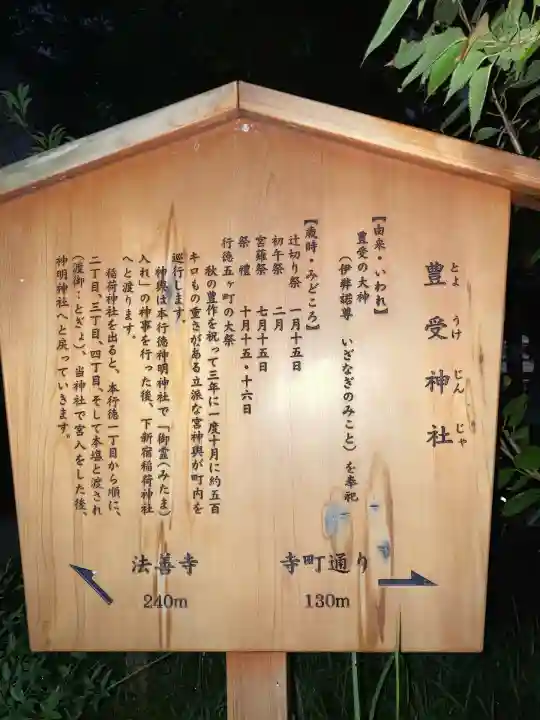 豊受神社
とようけじんじゃ
【由来・いわれ】
豊受の大神
(伊弉諾尊 いざなぎのみこと)を奉祀
【歳時・みどころ】
辻切り祭 一月十五日
初午祭 二月
宮薙祭 七月十五日
祭禮 十月十五・十六日
行徳五ヶ町の大祭
秋の豊作を祝って三年に一度十月に約五百
キロもの重さがある立派な宮神輿が町内を
巡行します。
神輿は本行徳神明神社で「御霊(みたま)
入れ」の神事を行った後、下新宿稲荷神社
へと渡ります。
稲荷神社を出ると、本行徳一丁目から順に、
二丁目、三丁目、四丁目、そして本塩と渡され
(渡御:とぎょ)、当神社で宮入をした後、
神明神社へと戻っていきます。
法善寺
240m
寺町通り
130m